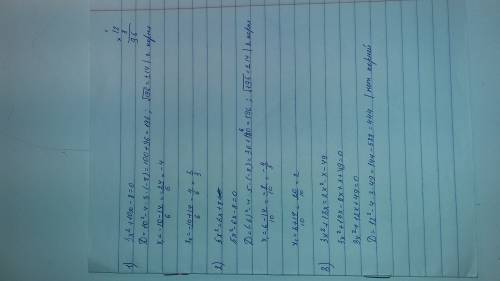 1) 3x²+10x-8=0
× 12
8
96
D=10²-4·3·(-8)=100+96=196; √196=±14 | 2 корня
x₁=-10-14/6=-24/6=-4
x₂=-10+14/6=4/6=2/3
2) 5x²=6x+8
5x²-6x-8=0
D=(-6)²-4·5·(-8)=36+160=196; √196=±14 | 2 корня
x₁=6-14/10=-8/10=-4/5
x₂=6+14/10=20/10=2
3) 3x²+13x=2x²+x-49
3x²+13x-2x²-x+49=0
D=12²-4·3·49=144-588=444 | нет корней